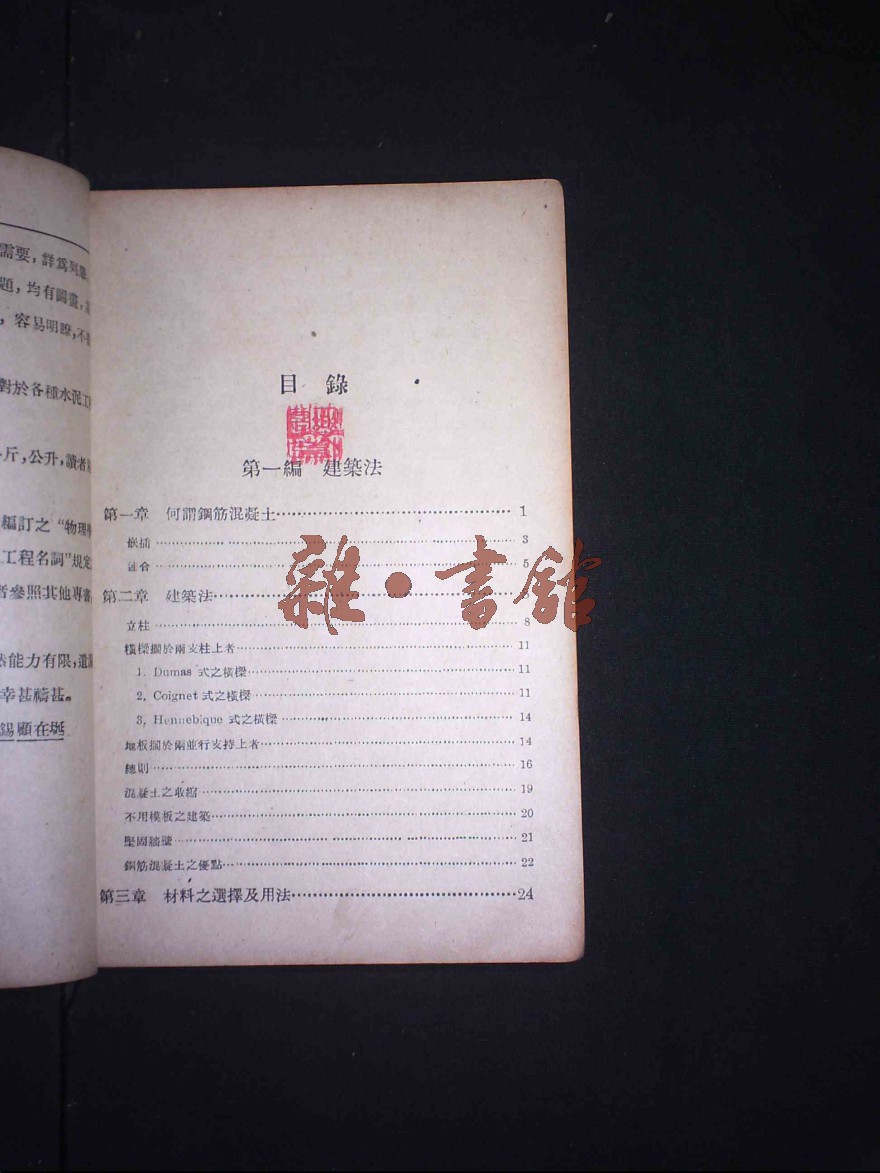 需要，詳爲列
題，均有圖畫，
，容易明瞭，不
對於各種水泥工
斤，公升，讀者
編訂之“物理學
工程名詞”規定
者參照其他專書
能力有限，遺
幸甚禱甚。
錫顧在埏
目錄
第一編 建築法
第一章 何謂鋼筋混凝土 1
嵌插 3
5
第二章 建築法
立柱 8
橫樑擱於兩支柱上者 11
1. Dumas 式之橫樑 11
2. Coignet 式之橫樑 11
3. Hennebique 式之橫樑 14
地板擱於兩並行支持上者 14
總則 16
混凝土之收縮 19
不用模板之建築 20
堅固牆壁 21
鋼筋混凝土之優點 22
第三章 材料之選擇及用法 24
雜·書館